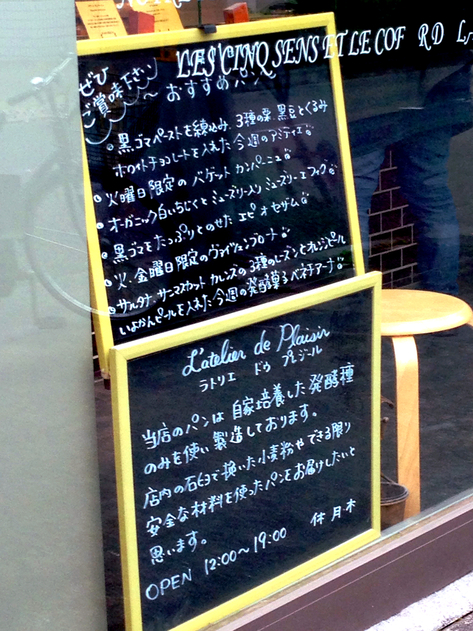 LES CINQ SENS ET LE COF RD LA
ぜひ
ご賞味下さい
～おすすめパン～
黒ゴマペーストを練込み、3種の栗、黒豆とくるみ
ホワイトチョコレートを入れた今週のアミティエ
火曜日限定のバゲットカンパーニュ
オーガニック白いちじくとミューズリー入りミューズリーエフィグ
黒ゴマをたっぷりとのせたエピオセザム
火、金曜日限定のヴァイツェンブロート
サルタナ・サマスカット カレンズの3種のレーズンとオレンジピール
いよかんピールを入れた今週の発酵菓子ベネチアーナ
L'atelier de Plaisir
ラトリエ ドゥ プレジール
当店のパンは自家培養した発酵種
のみを使い製造しております。
店内の石臼で挽いた小麦粉やできる限り
安全な材料を使ったパンをお届けしたいと
思います。
OPEN 12:00～19:00 休 月木